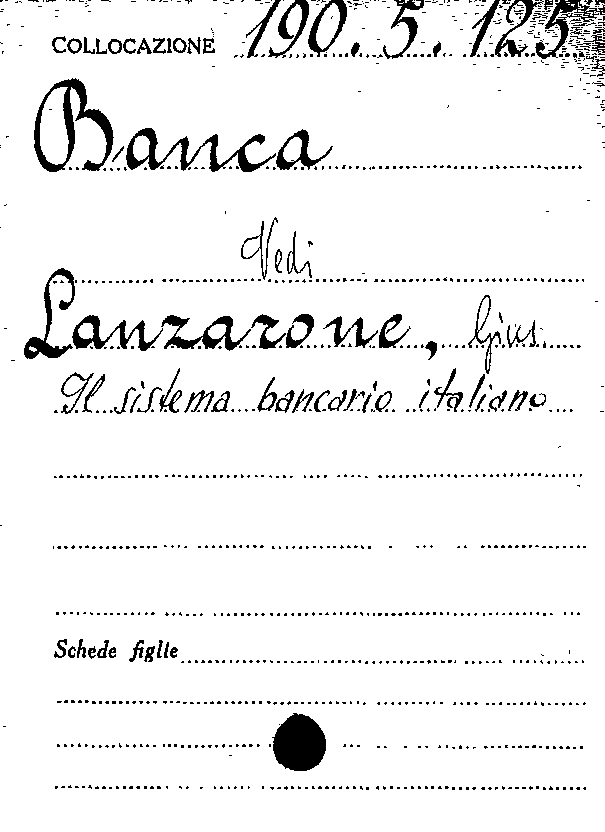 COLLOCAZIONE 190.5.125
Banca
Vedi
Lanzarone, Gius.
Il sistema bancario italiano
Schede figlie